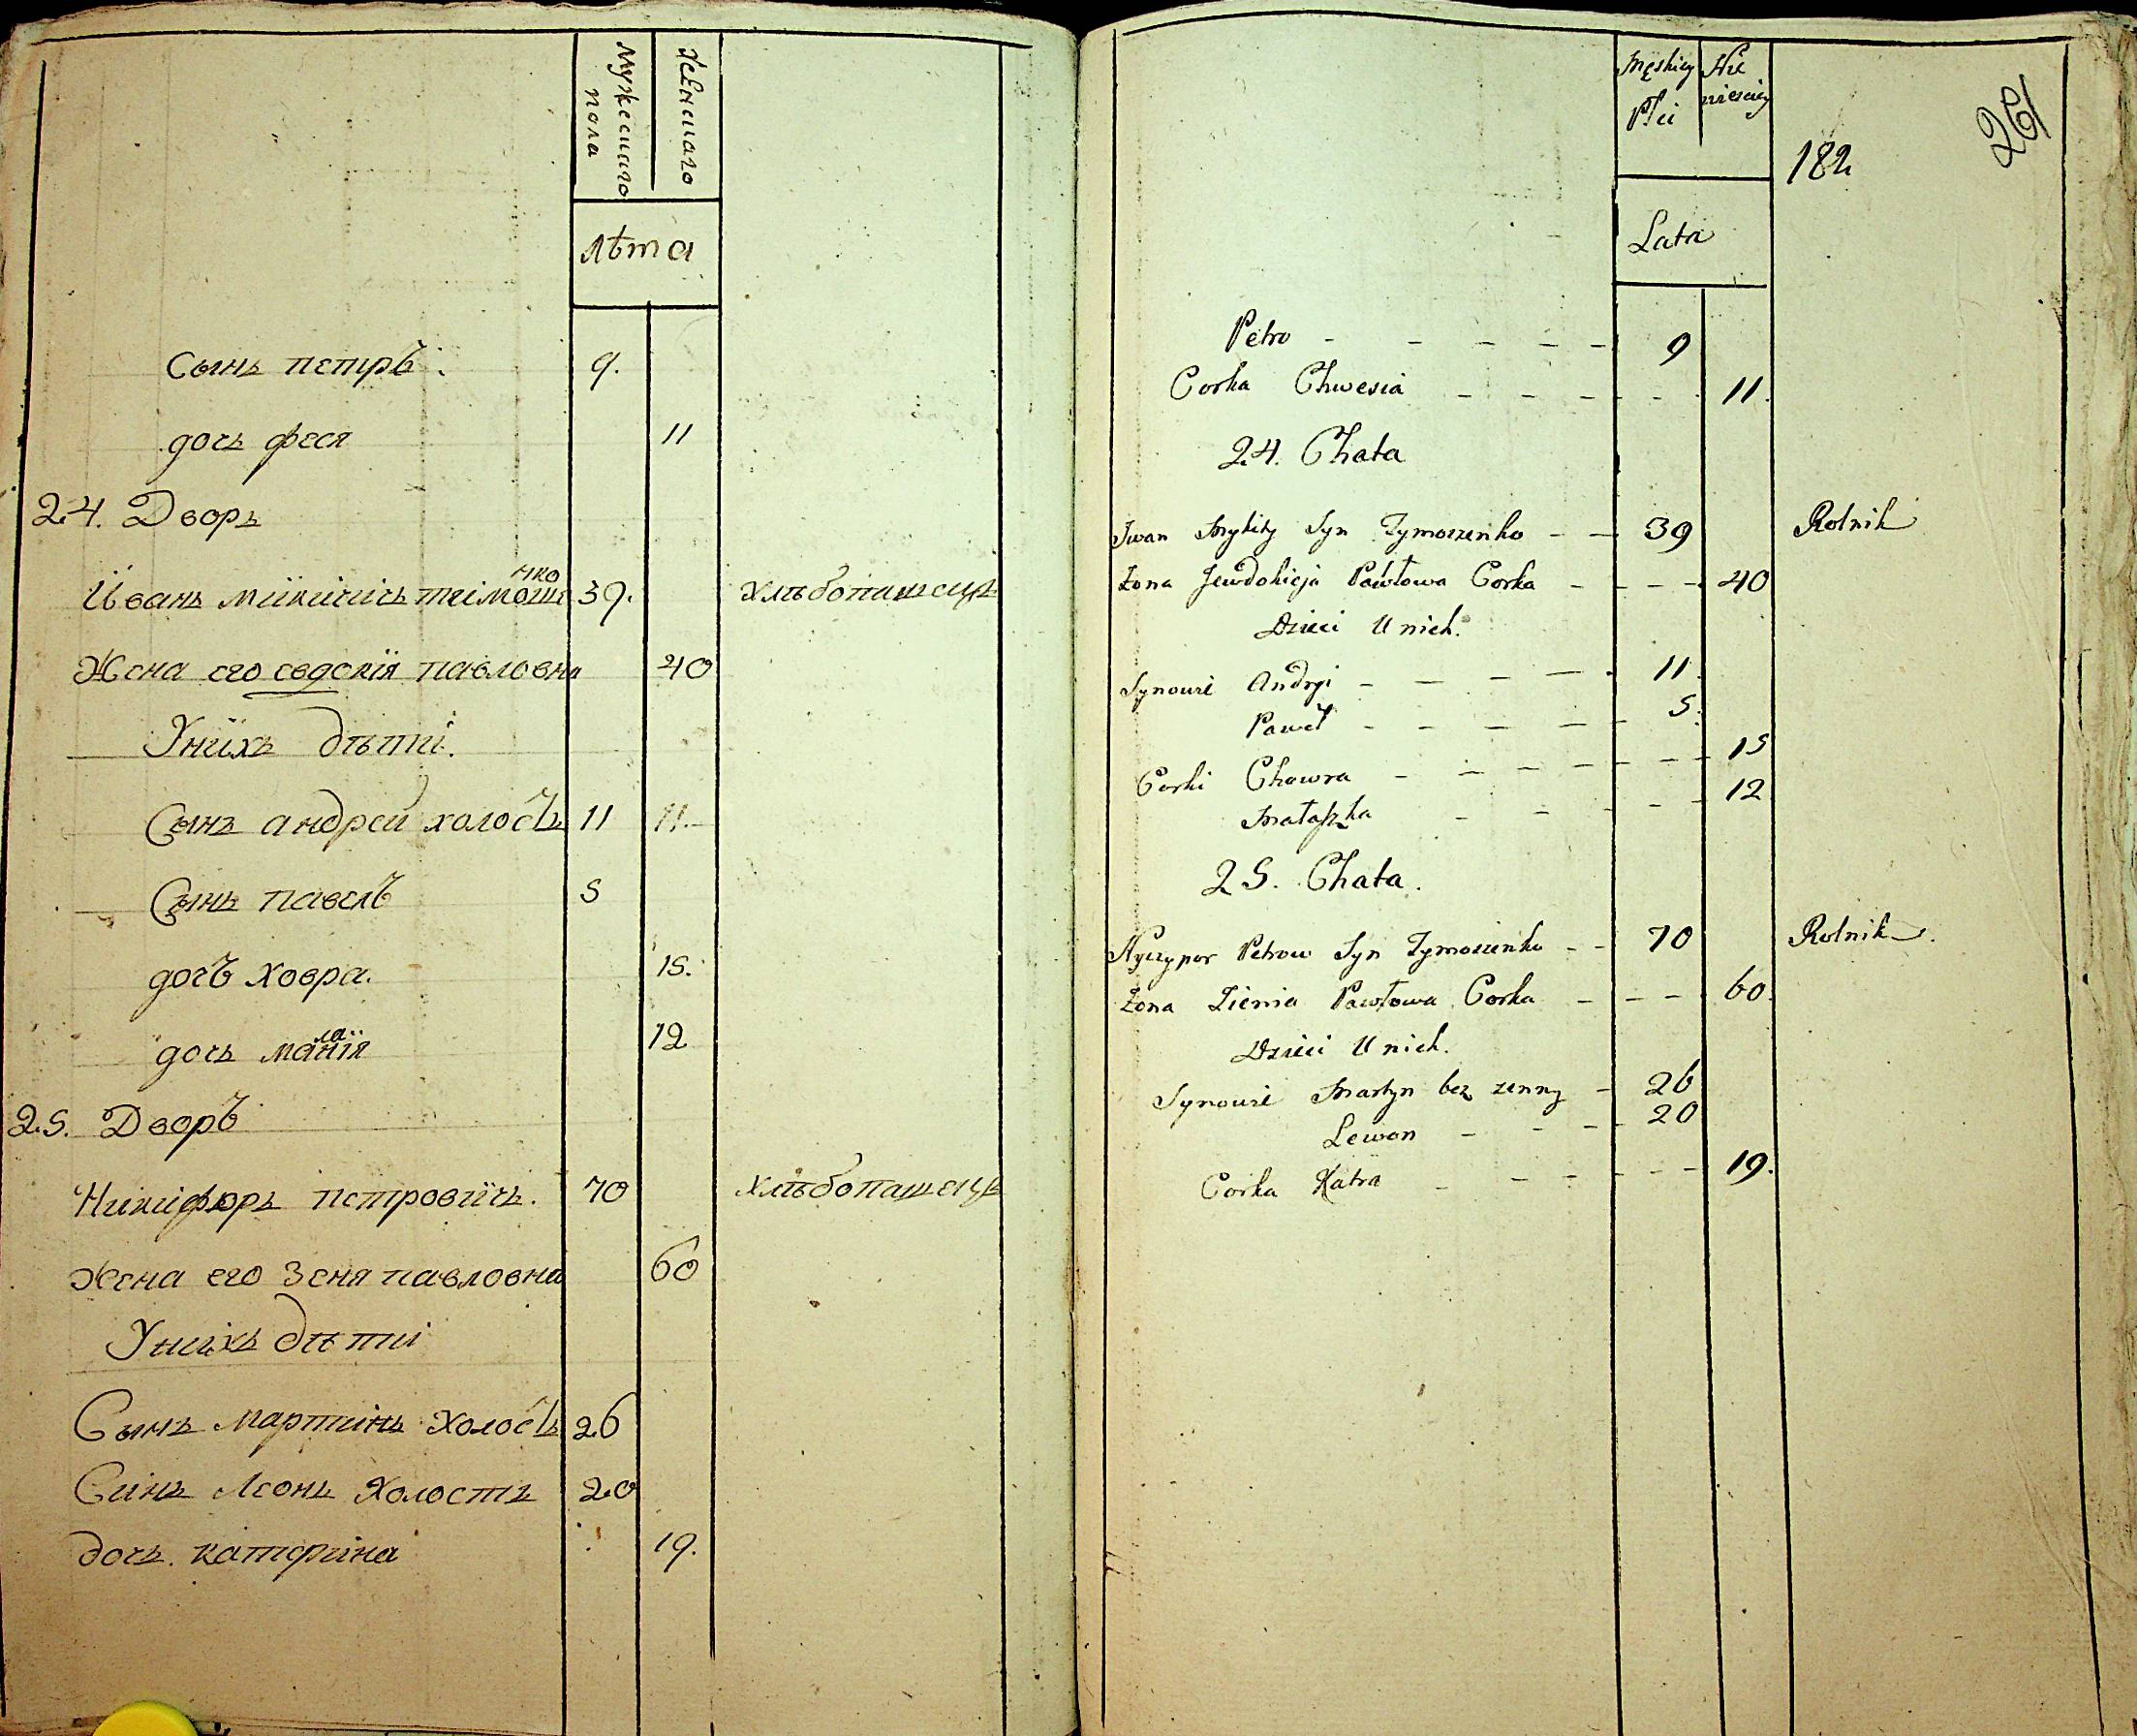 Мужескаго пола Женскаго
Лѣта
Сынъ петръ. 9.
дочь феся 11
24. Дворъ
нко
Иванъ микичичъ тимоше 39. хлѣбопашецъ
Жена его евдокия павловна 40
У нихъ дѣти.
Сынъ андрей холостъ 11 11.
Сынъ павелъ 5
дочъ ховра. 15.
ла
дочь мания 12
25. Дворъ
Никифоръ петровичъ. 70 хлѣбопашецъ
Жена его Зеня павловна 60
У нихъ дѣти
Сынъ мартинъ холостъ 26
Синъ Леонъ холостъ 20
дочь. катерина 19.
Męskiey Płci Nie wiesciey
261
182
Lata
Petro - - - - - 9
Corka Chwesia - - - - - 11.
24. Chata
Iwan Mykity Syn Tymoszenko - - 39 Rolnik
Zona Jewdokieja Pawłowa Corka - - - - 40
Dzieci U nich.
Synowie Andryi - - - - 11.
Paweł - - - - - 5.
Corki Chowra - - - - - - - 15
Małaszka - - - - - 12
25. Chata.
Nyczypor Petrow Syn Tymoszenko - - 70 Rolnik.
Zona Zienia Pawłowa Corka - - - 60.
Dzieci U nich.
Synowie Martyn bez zenny - 26
Lewon - - - 20
Corka Katra - - - - - 19.